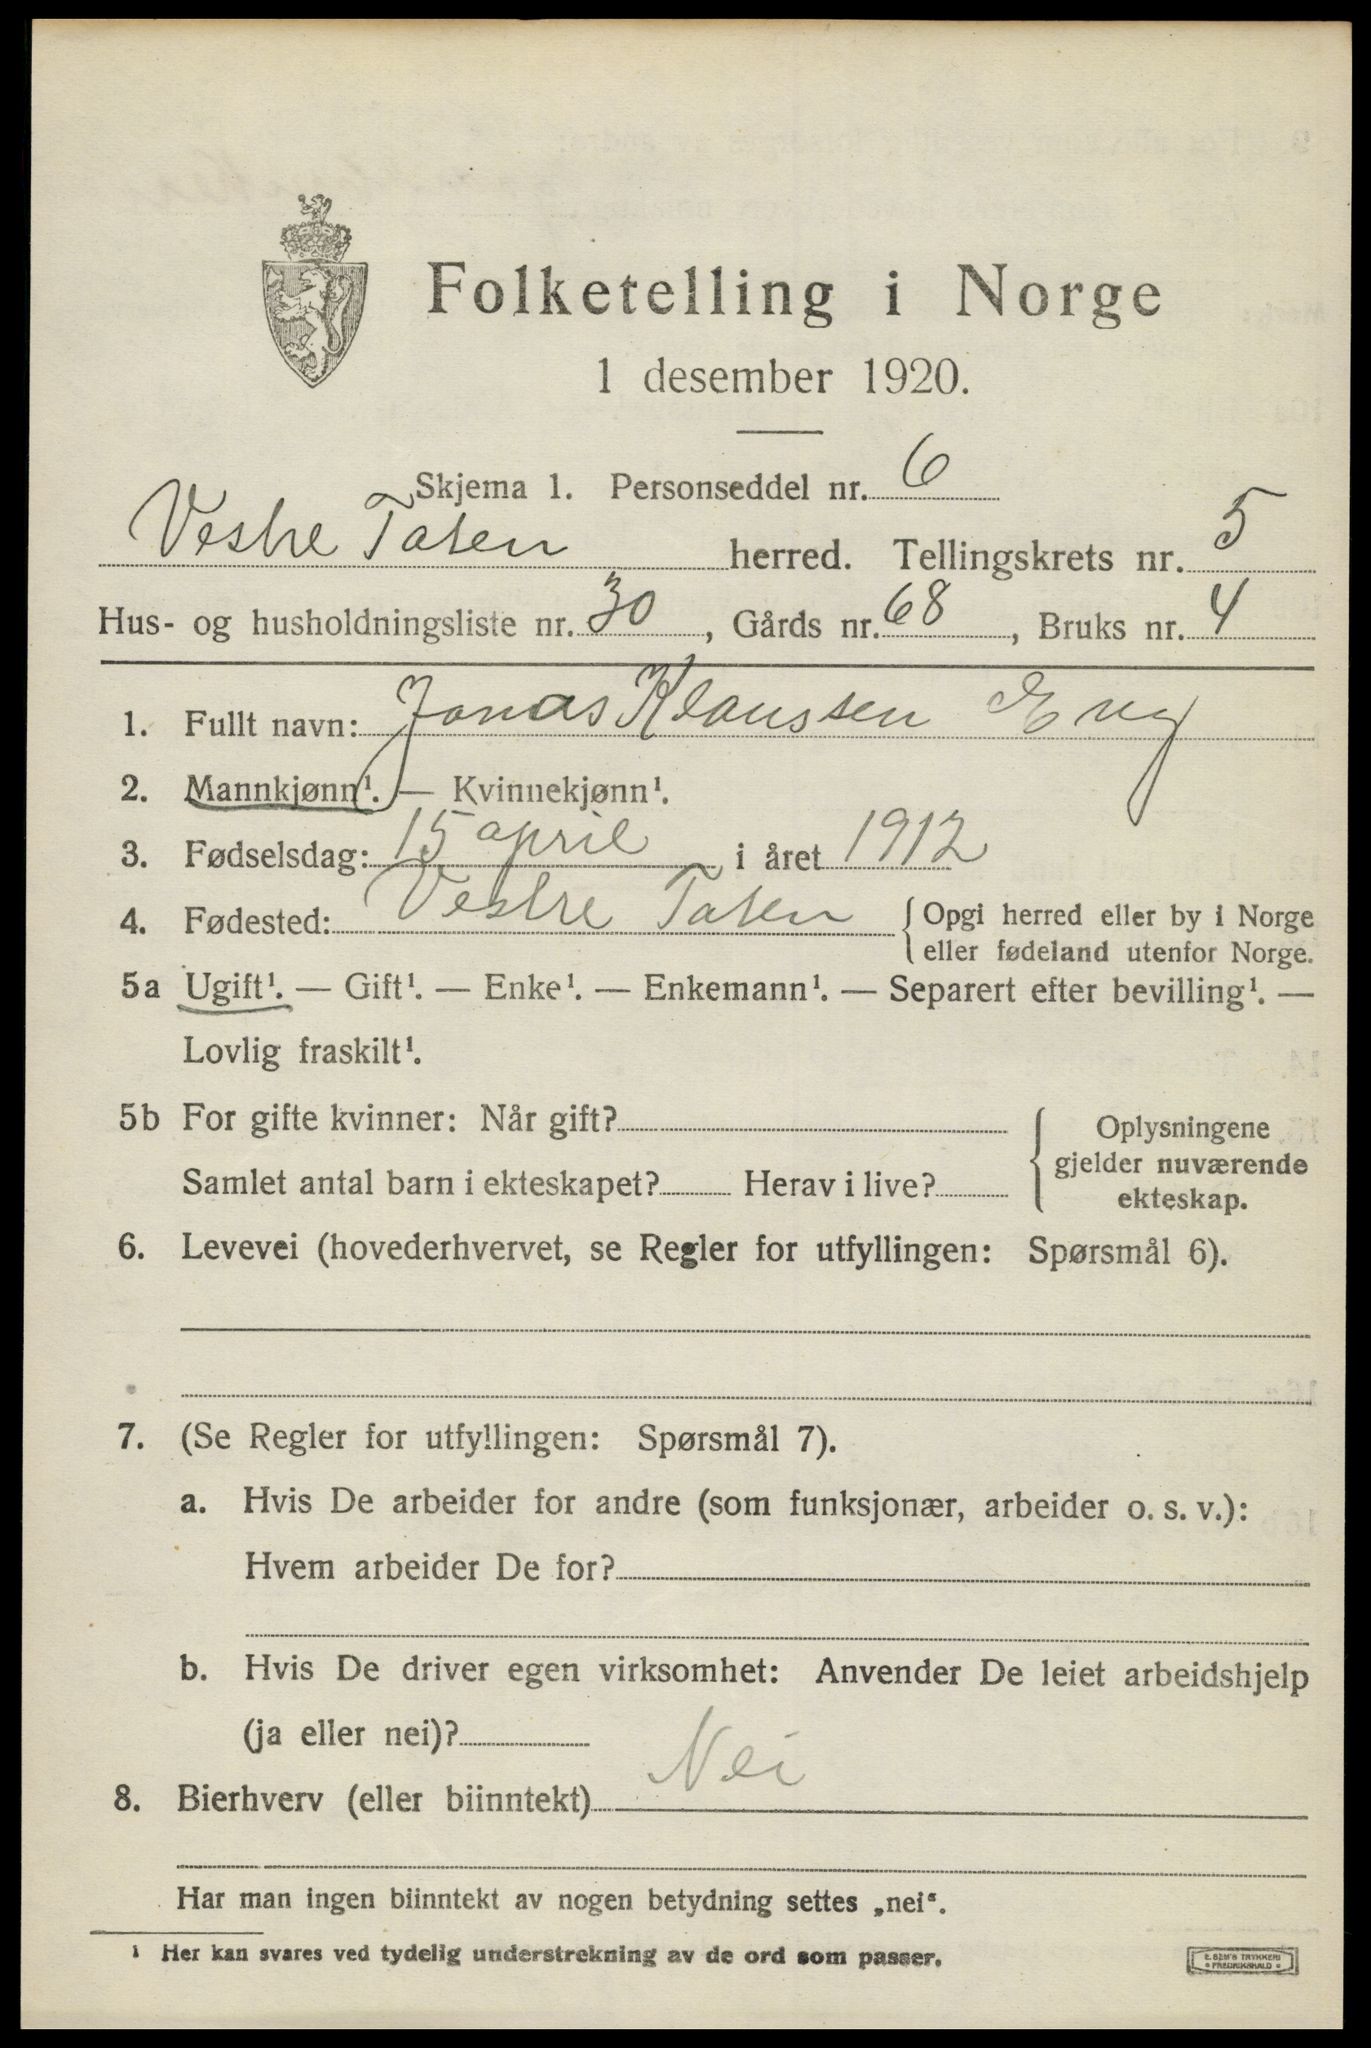 Folketelling i Norge
1 desember 1920.
Skjema 1. Personseddel nr. 6
Vestre Toten herred. Tellingskrets nr. 5
Hus- og husholdningsliste nr. 30, Gårds nr. 68, Bruks nr. 4
1. Fullt navn: Jonas Klaussen Eng
2. Mannkjønn¹. — Kvinnekjønn¹.
3. Fødselsdag: 15 april i året 1912
4. Fødested: Vestre Toten { Opgi herred eller by i Norge
eller fødeland utenfor Norge.
5a Ugift¹. — Gift¹. — Enke¹. — Enkemann¹. — Separert efter bevilling¹. —
Lovlig fraskilt¹.
5b For gifte kvinner: Når gift?
Samlet antal barn i ekteskapet? Herav i live?
Oplysningene
gjelder nuværende
ekteskap.
6. Levevei (hovederhvervet, se Regler for utfyllingen: Spørsmål 6).
7. (Se Regler for utfyllingen: Spørsmål 7).
a. Hvis De arbeider for andre (som funksjonær, arbeider o. s. v.):
Hvem arbeider De for?
b. Hvis De driver egen virksomhet: Anvender De leiet arbeidshjelp
(ja eller nei)?
8. Bierhverv (eller biinntekt) Nei
Har man ingen biinntekt av nogen betydning settes „nei“.
¹ Her kan svares ved tydelig understrekning av de ord som passer.
E. SEM'S TRYKKERI
FREDRIKSHALD